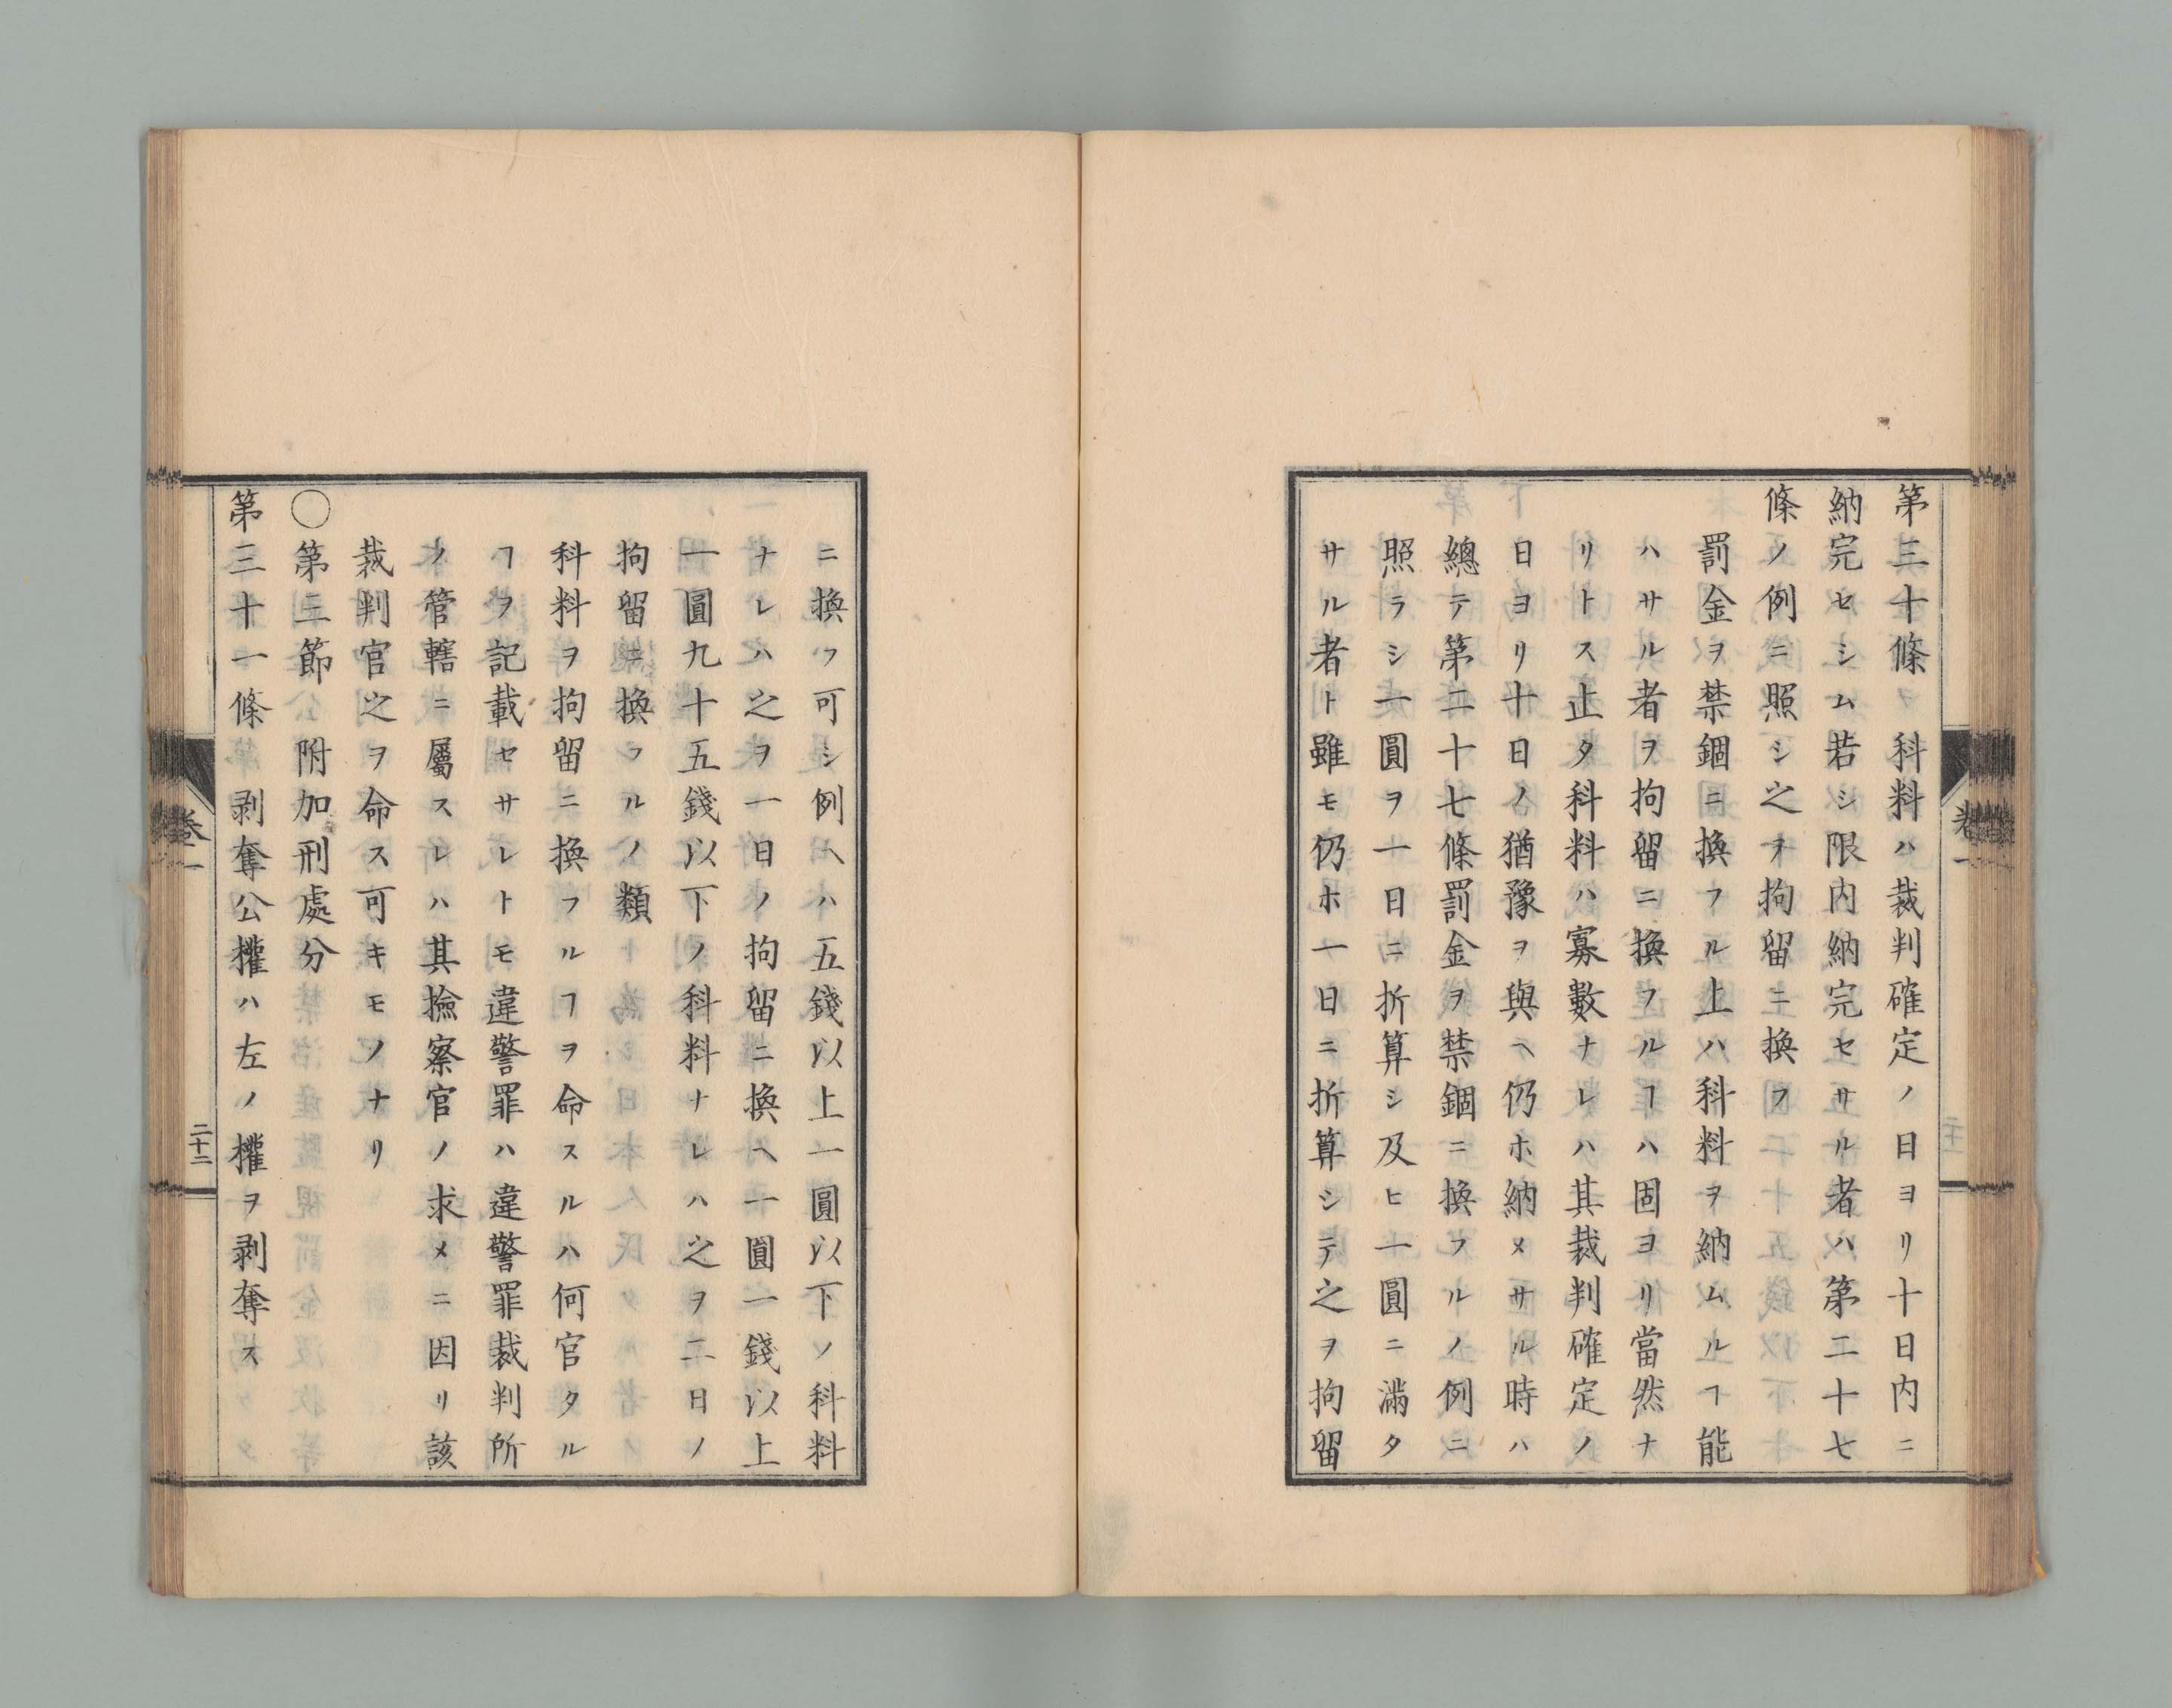 第三十條　科料ハ裁判確定ノ日ヨリ十日内ニ
納完セシム若シ限内納完セサル者ハ第二十七
條ノ例ニ照シ之ヲ拘留ニ換フ
罰金ヲ禁錮ニ換フル上ハ科料ヲ納ムルヿ能
ハサル者ヲ拘留ニ換フルヿハ固ヨリ當然ナ
リトス止タ科料ハ寡數ナレハ其裁判確定ノ
日ヨリ十日ノ猶豫ヲ與ヘ仍ホ納メサル時ハ
總テ第二十七條罰金ヲ禁錮ニ換フルノ例ニ
照ラシ一圓ヲ一日ニ折算シ及ヒ一圓ニ滿タ
サル者ト雖モ仍ホ一日ニ折算シテ之ヲ拘留
卷一
ニ換フ可シ例ヘハ五錢以上一圓以下ノ科料
ナレハ之ヲ一日ノ拘留ニ換ヘ一圓一錢以上
一圓九十五錢以下ノ科料ナレハ之ヲ二日ノ
拘留ニ換フルノ類
科料ヲ拘留ニ換フルヿヲ命スルハ何官タル
ヿヲ記載セサレトモ違警罪ハ違警罪裁判所
ノ管轄ニ屬スレハ其撿察官ノ求メニ因リ該
裁判官之ヲ命ス可キモノナリ
〇第三節　附加刑處分
第三十一條　剥奪公權ハ左ノ權ヲ剥奪ス
卷一
二十二